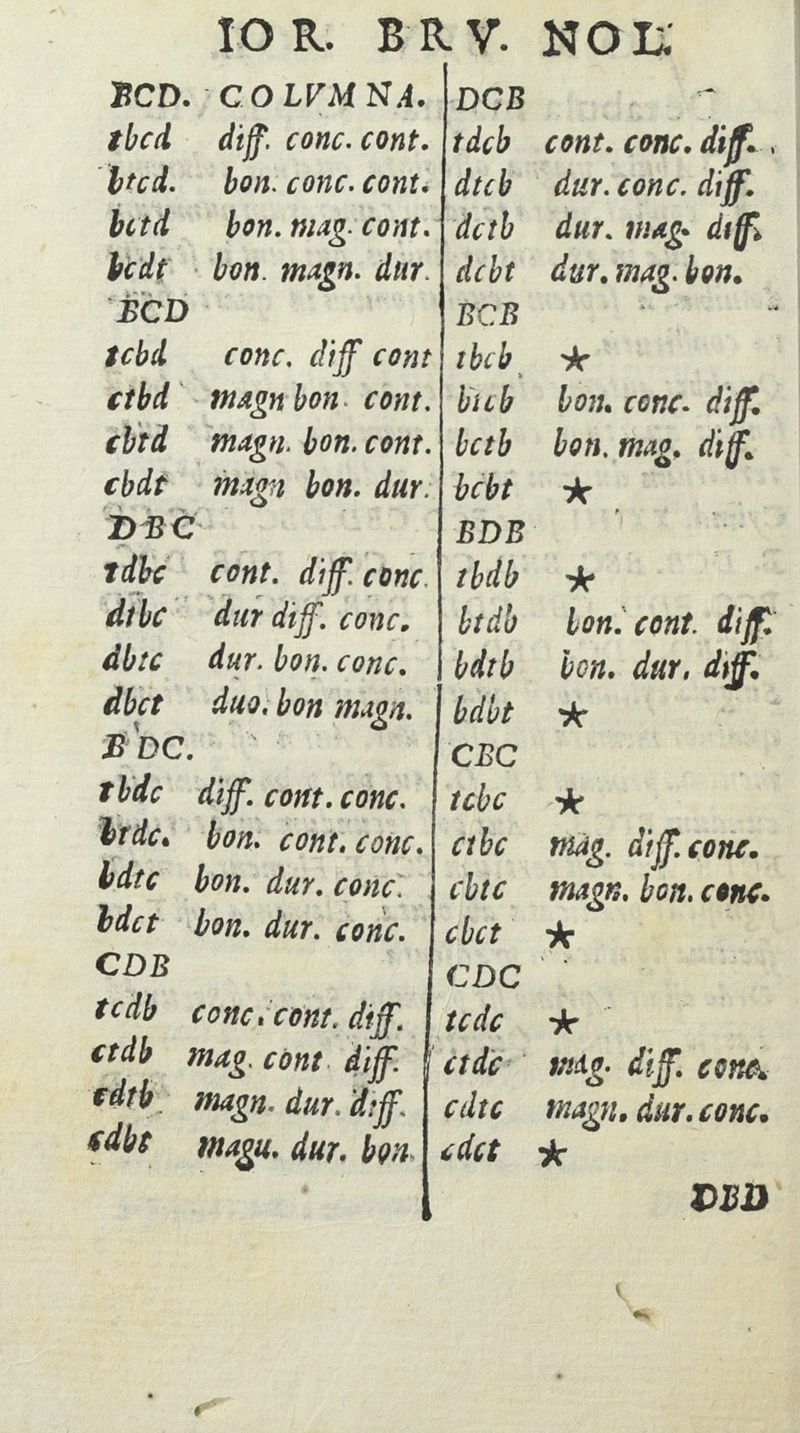 IOR. BRV. NOL.
BCD. COLVMNA.
tbcd diff. conc. cont.
btcd. bon. conc. cont.
bctd bon. mag. cont.
bcdt bon. magn. dur.
BCD
tcbd conc. diff cont
ctbd magn bon cont.
cbtd magn. bon. cont.
cbdt magn bon. dur.
DBC
tdbc cont. diff. conc.
dtbc dur diff. conc.
dbtc dur. bon. conc.
dbct duo. bon magn.
BDC.
tbdc diff. cont. conc.
btdc. bon. cont. conc.
bdtc bon. dur. conc.
bdct bon. dur. conc.
CDB
tcdb conc. cont. diff.
ctdb mag. cont diff.
cdtb magn. dur. diff.
cdbt magu. dur. bon.
DCB
tdcb cont. conc. diff.
dtcb dur. conc. diff.
dctb dur. mag. diff.
dcbt dur. mag. bon.
BCB
tbcb ★
btcb bon. conc. diff.
bctb bon. mag. diff.
bcbt ★
BDB
tbdb ★
btdb bon. cont. diff.
bdtb bon. dur. diff.
bdbt ★
CBC
tcbc ★
ctbc mag. diff. conc.
cbtc magn. bon. conc.
cbct ★
CDC
tcdc ★
ctdc mag. diff. conc.
cdtc magn. dur. conc.
cdct ★
DBD